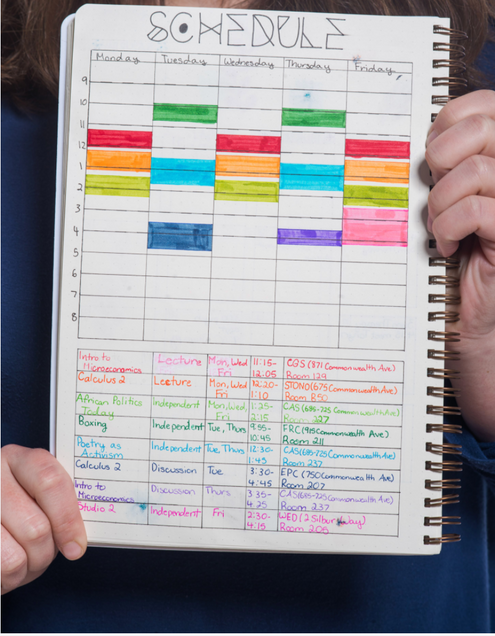 SCHEDULE
Monday Tuesday Wednesday Thursday Friday
9
10
11
12
1
2
3
4
5
6
7
8
Intro to Microeconomics Lecture Mon, Wed Fri 11:15-12:05 CGS (871 Commonwealth Ave) Room 129
Calculus 2 Lecture Mon, Wed Fri 12:20-1:10 STONO (675 Commonwealth Ave) Room B50
African Politics Today Independent Mon, Wed, Fri 1:25-2:15 CAS (685-725 Commonwealth Ave) Room 227
Boxing Independent Tue, Thurs 9:55-10:45 FRC (915 Commonwealth Ave) Room 211
Poetry as Activism Independent Tue, Thurs 12:30-1:45 CAS (685-725 Commonwealth Ave) Room 237
Calculus 2 Discussion Tue 3:30-4:45 EPC (750 Commonwealth Ave) Room 207
Intro to Microeconomics Discussion Thurs 3:35-4:25 CAS (685-725 Commonwealth Ave) Room 237
Studio 2 Independent Fri 2:30-4:15 WED (2 Silber Way) Room 205